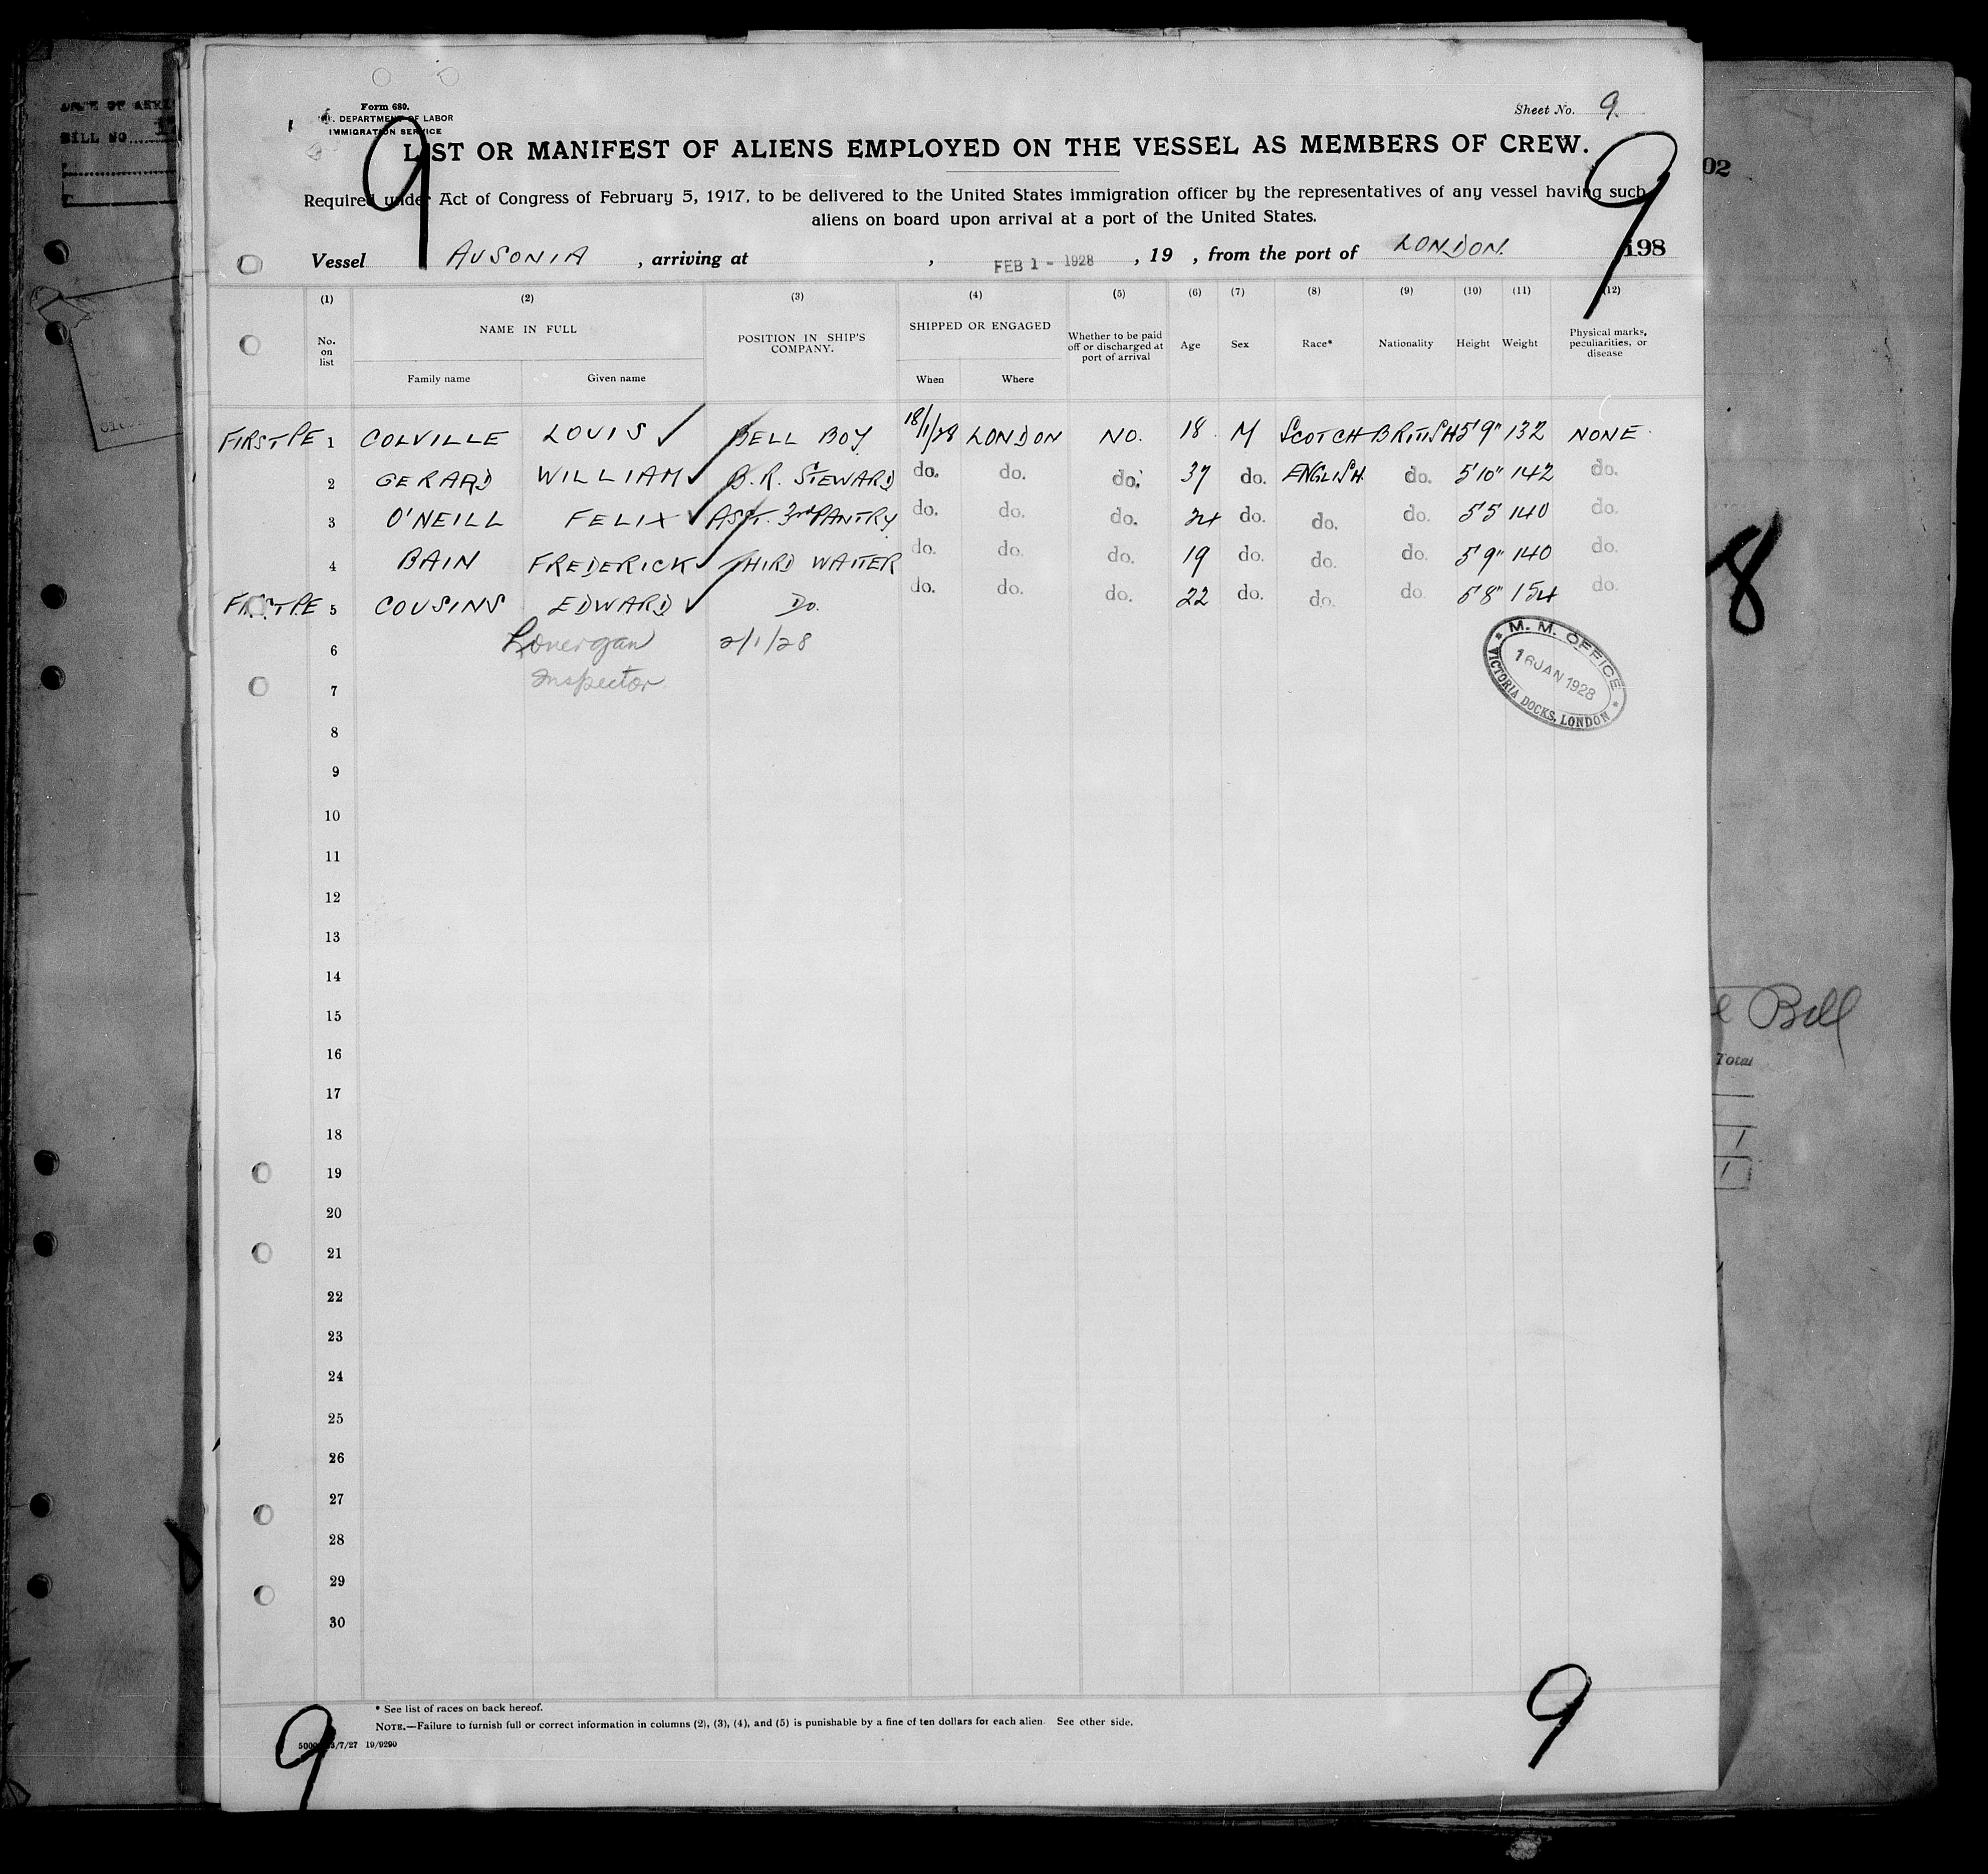 BILL NO
02
Form 680.
. DEPARTMENT OF LABOR
IMMIGRATION SERVICE
Sheet No. 9.
9
9
LIST OR MANIFEST OF ALIENS EMPLOYED ON THE VESSEL AS MEMBERS OF CREW.
Required under Act of Congress of February 5, 1917, to be delivered to the United States immigration officer by the representatives of any vessel having such
aliens on board upon arrival at a port of the United States.
Vessel AUSONIA , arriving at , FEB 1 - 1928 , 19 , from the port of LONDON. 198
(1) (2) (3) (4) (5) (6) (7) (8) (9) (10) (11) (12)
No. on list NAME IN FULL Family name Given name POSITION IN SHIP'S COMPANY. SHIPPED OR ENGAGED When Where Whether to be paid off or discharged at port of arrival Age Sex Race* Nationality Height Weight Physical marks, peculiarities, or disease
FIRST PE 1 COLVILLE LOUIS ✓ BELL BOY 18/1/28 LONDON NO. 18 M SCOTCH BRITISH 5'9" 132 NONE
2 GERARD WILLIAM ✓ B.R. STEWARD do. do. do. 37 do. ENGLISH do. 5'10" 142 do.
3 O'NEILL FELIX ✓ ASST. 3rd PANTRY do. do. do. 24 do. do. do. 5'5 140 do.
4 BAIN FREDERICK ✓ THIRD WAITER do. do. do. 19 do. do. do. 5'9" 140 do.
FIRST PE 5 COUSINS EDWARD ✓ Do. do. do. do. 22 do. do. do. 5'8" 154 do.
6 Lonergan 2/1/28
7 Inspector
M. M. OFFICE
16 JAN 1928
VICTORIA DOCKS, LONDON
8
9
10
11
12
13
14
15
16
17
18
19
20
21
22
23
24
25
26
27
28
29
30
8
Bill
Total
1
1
* See list of races on back hereof.
NOTE.—Failure to furnish full or correct information in columns (2), (3), (4), and (5) is punishable by a fine of ten dollars for each alien. See other side.
3/7/27 19/9290
9
9